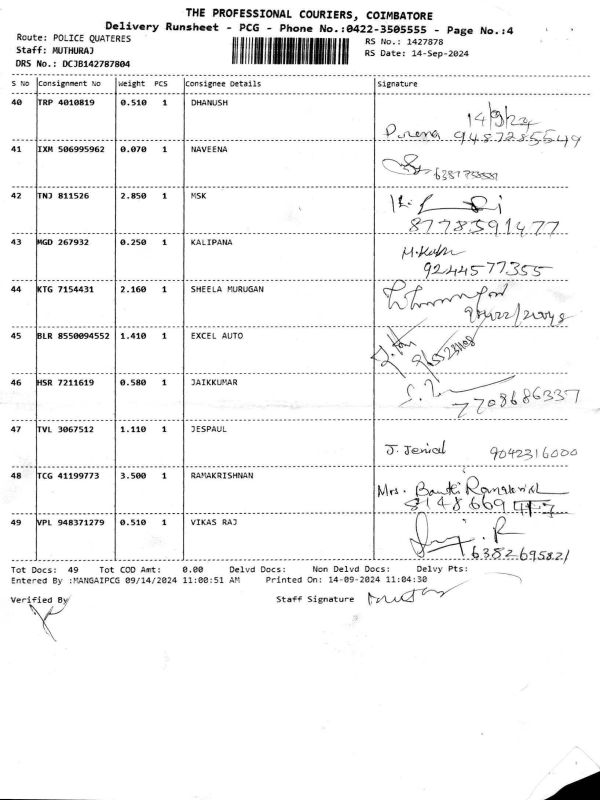 THE PROFESSIONAL COURIERS, COIMBATORE
Delivery Runsheet - PCG - Phone No.:0422-3505555 - Page No.:4
Route: POLICE QUATERES RS No.: 1427878
Staff: MUTHURAJ RS Date: 14-Sep-2024
DRS No.: DCJB142787804
S No Consignment No Weight PCS Consignee Details Signature
40 TRP 4010819 0.510 1 DHANUSH
14/9/24
9487285549
41 IXM 506995962 0.070 1 NAVEENA
42 TNJ 811526 2.850 1 MSK
8778591477
43 MGD 267932 0.250 1 KALIPANA
9244577355
44 KTG 7154431 2.160 1 SHEELA MURUGAN
45 BLR 8550094552 1.410 1 EXCEL AUTO
46 HSR 7211619 0.580 1 JAIKKUMAR
7708686337
47 TVL 3067512 1.110 1 JESPAUL
J. Jenial 9042316000
48 TCG 41199773 3.500 1 RAMAKRISHNAN
Mrs.
8148669
49 VPL 948371279 0.510 1 VIKAS RAJ
6382695821
Tot Docs: 49 Tot COD Amt: 0.00 Delvd Docs: Non Delvd Docs: Delvy Pts:
Entered By :MANGAIPCG 09/14/2024 11:00:51 AM Printed On: 14-09-2024 11:04:30
Verified By Staff Signature